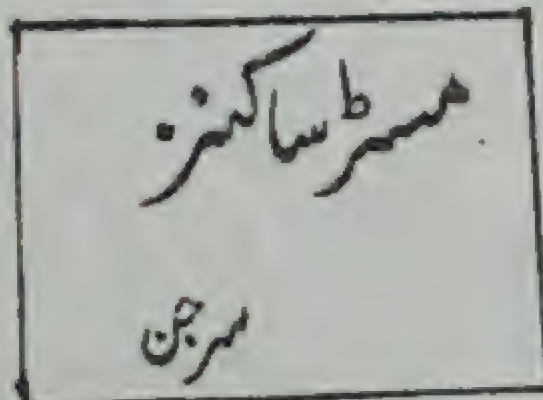 مسٹر ساکنز
سرجن